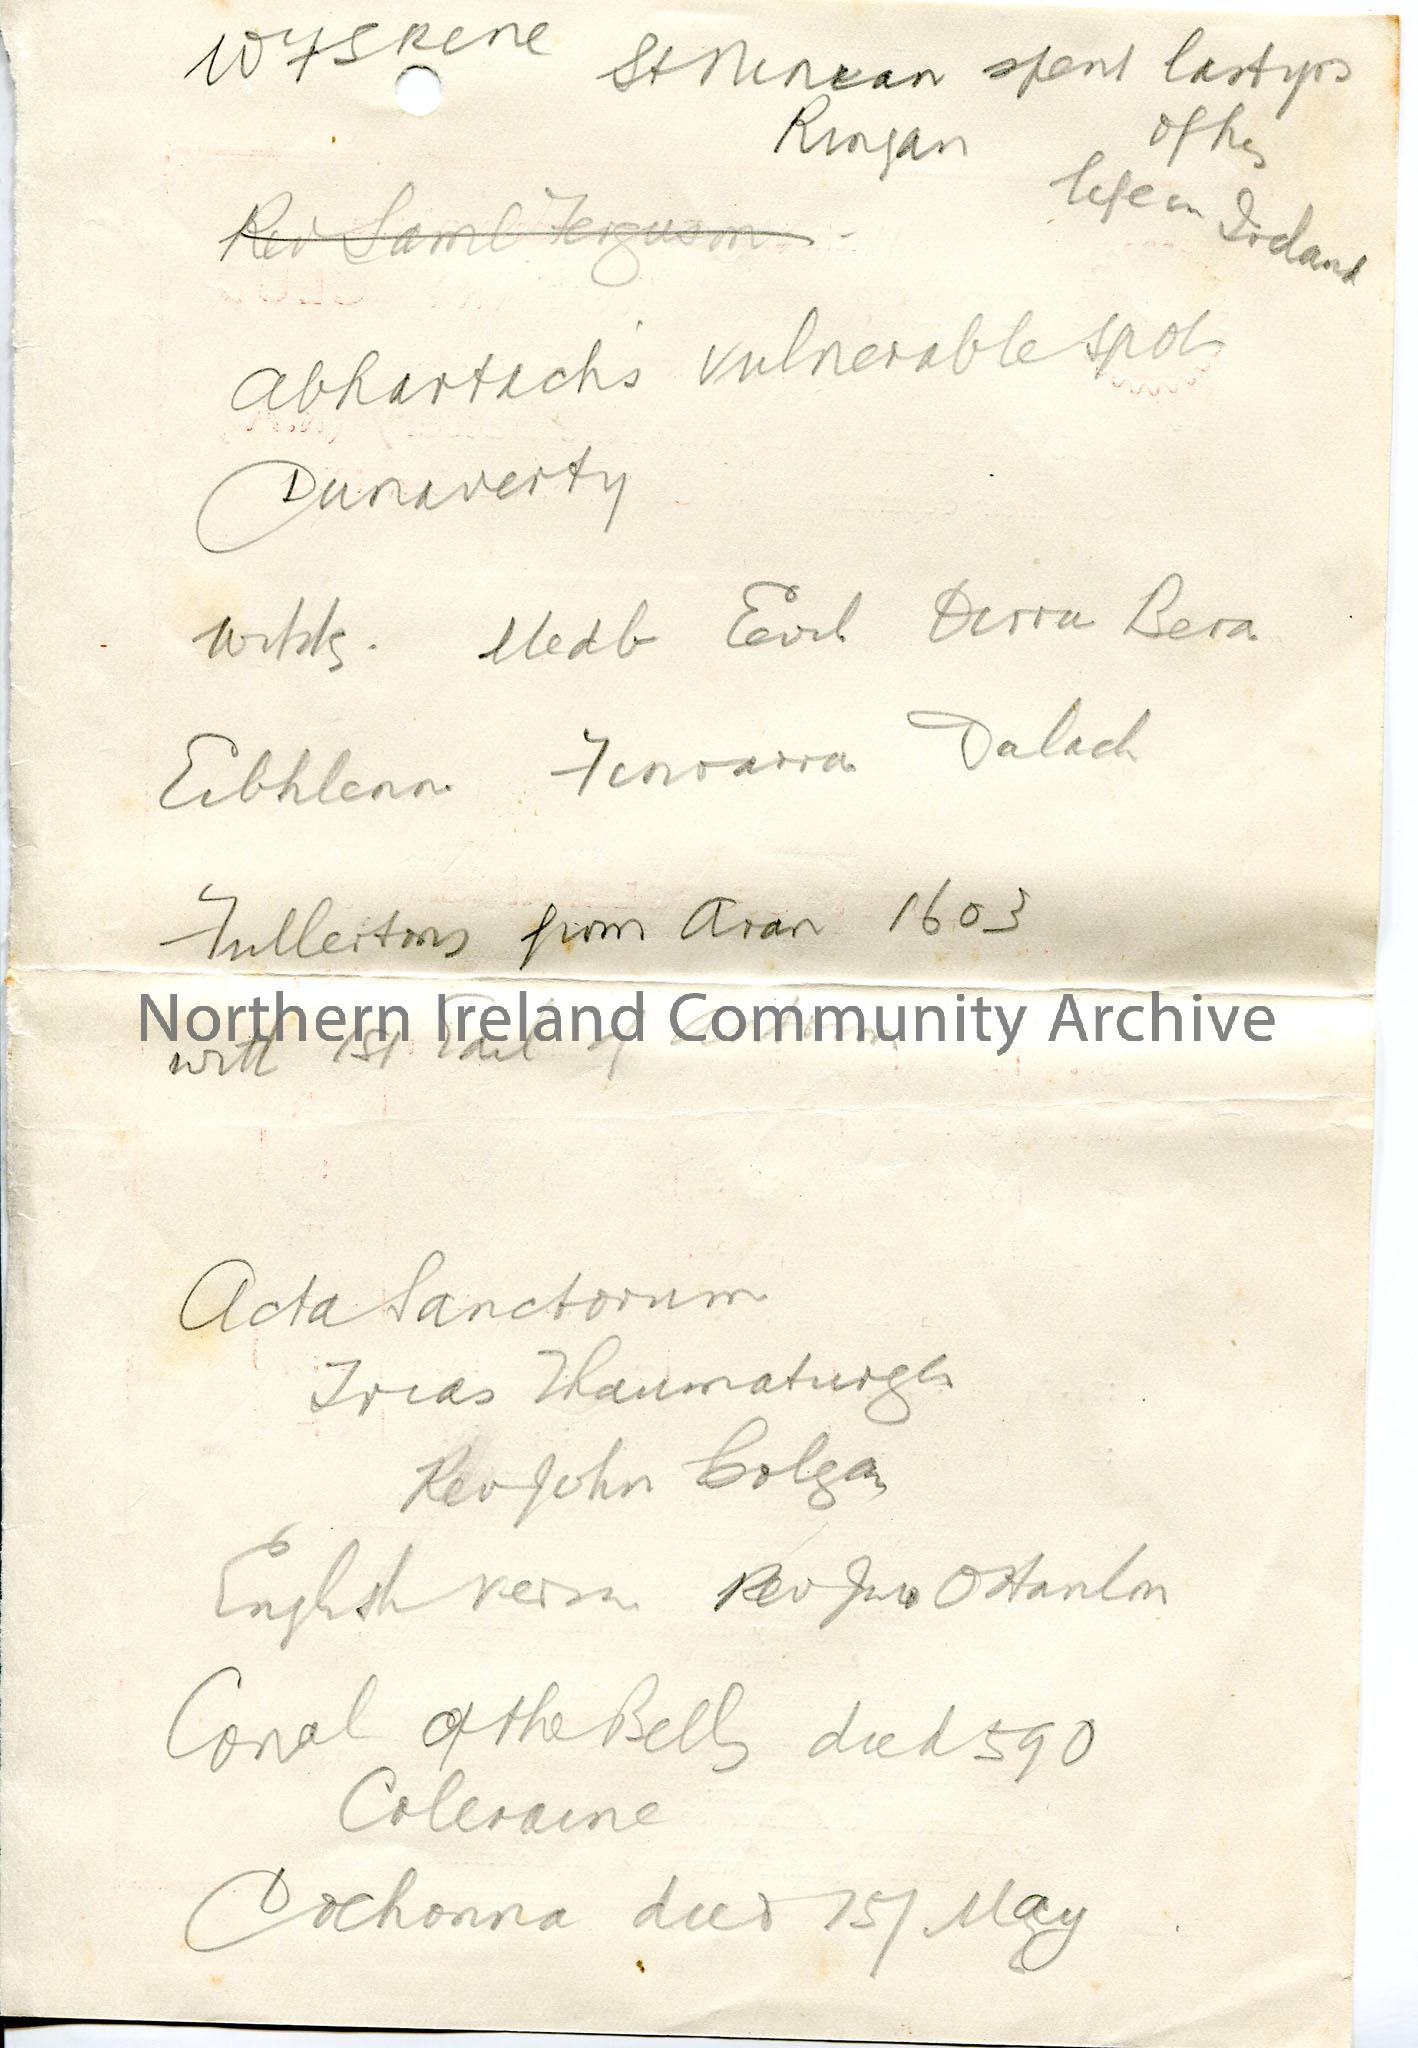 WF SKENE
St Ninian spent last yrs
Ringan of his
life in Ireland
Rev Saml Ferguson
Abhartach's vulnerable spot
Dunaverty
Medb Dirra Bera
Eibhlenn Dalach
Fullertons from Aran 1603
with 1st Earl of Antrim
Northern Ireland Community Archive
Acta Sanctorum
Trias Thaumaturga
Rev John Colgan
English versn Rev Jno O Hanlon
Conal of the Bells died 590
Coleraine
Dochonna died May